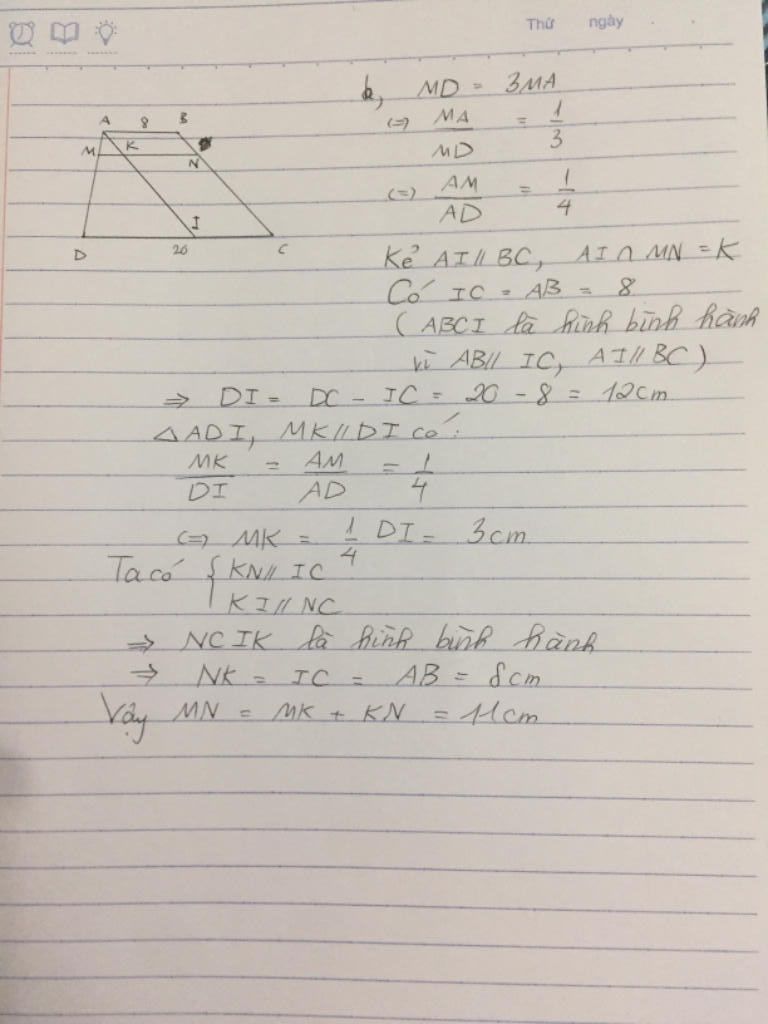 Thứ ngày
A 8 B
M K N
I
D 20 C
b, MD = 3MA
(=) MA/MD = 1/3
(=) AM/AD = 1/4
Kẻ AI // BC, AI ∩ MN = K
Có IC = AB = 8
( ABCI là hình bình hành
vì AB // IC, AI // BC )
⇒ DI = DC - IC = 20 - 8 = 12cm
△ ADI, MK // DI có:
MK/DI = AM/AD = 1/4
(=) MK = 1/4 DI = 3cm
Ta có { KN // IC
KI // NC
⇒ NCIK là hình bình hành
⇒ NK = IC = AB = 8cm
Vậy MN = MK + KN = 11cm